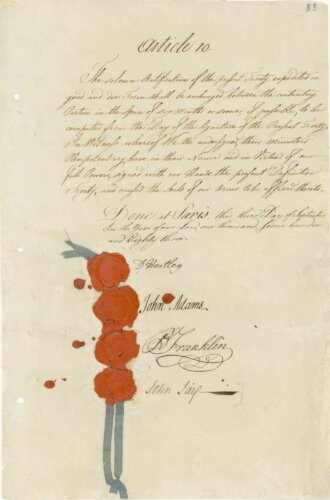 33
Article 10.
The solemn Ratifications of the present Treaty expedited in
good and due Form shall be exchanged between the contracting
Parties in the Space of six Months or sooner if possible, to be
computed from the Day of the Signature of the present Treaty.
In Witness whereof We the undersigned their Ministers
Plenipotentiary have in their Name and in Virtue of our
Full Powers, signed with our Hands the present Definitive
Treaty, and caused the Seals of our Arms to be affixed thereto.
Done at Paris this third Day of September
In the Year of our Lord, one thousand seven hundred
and Eighty three
D Hartley
John Adams.
B Franklin
John Jay